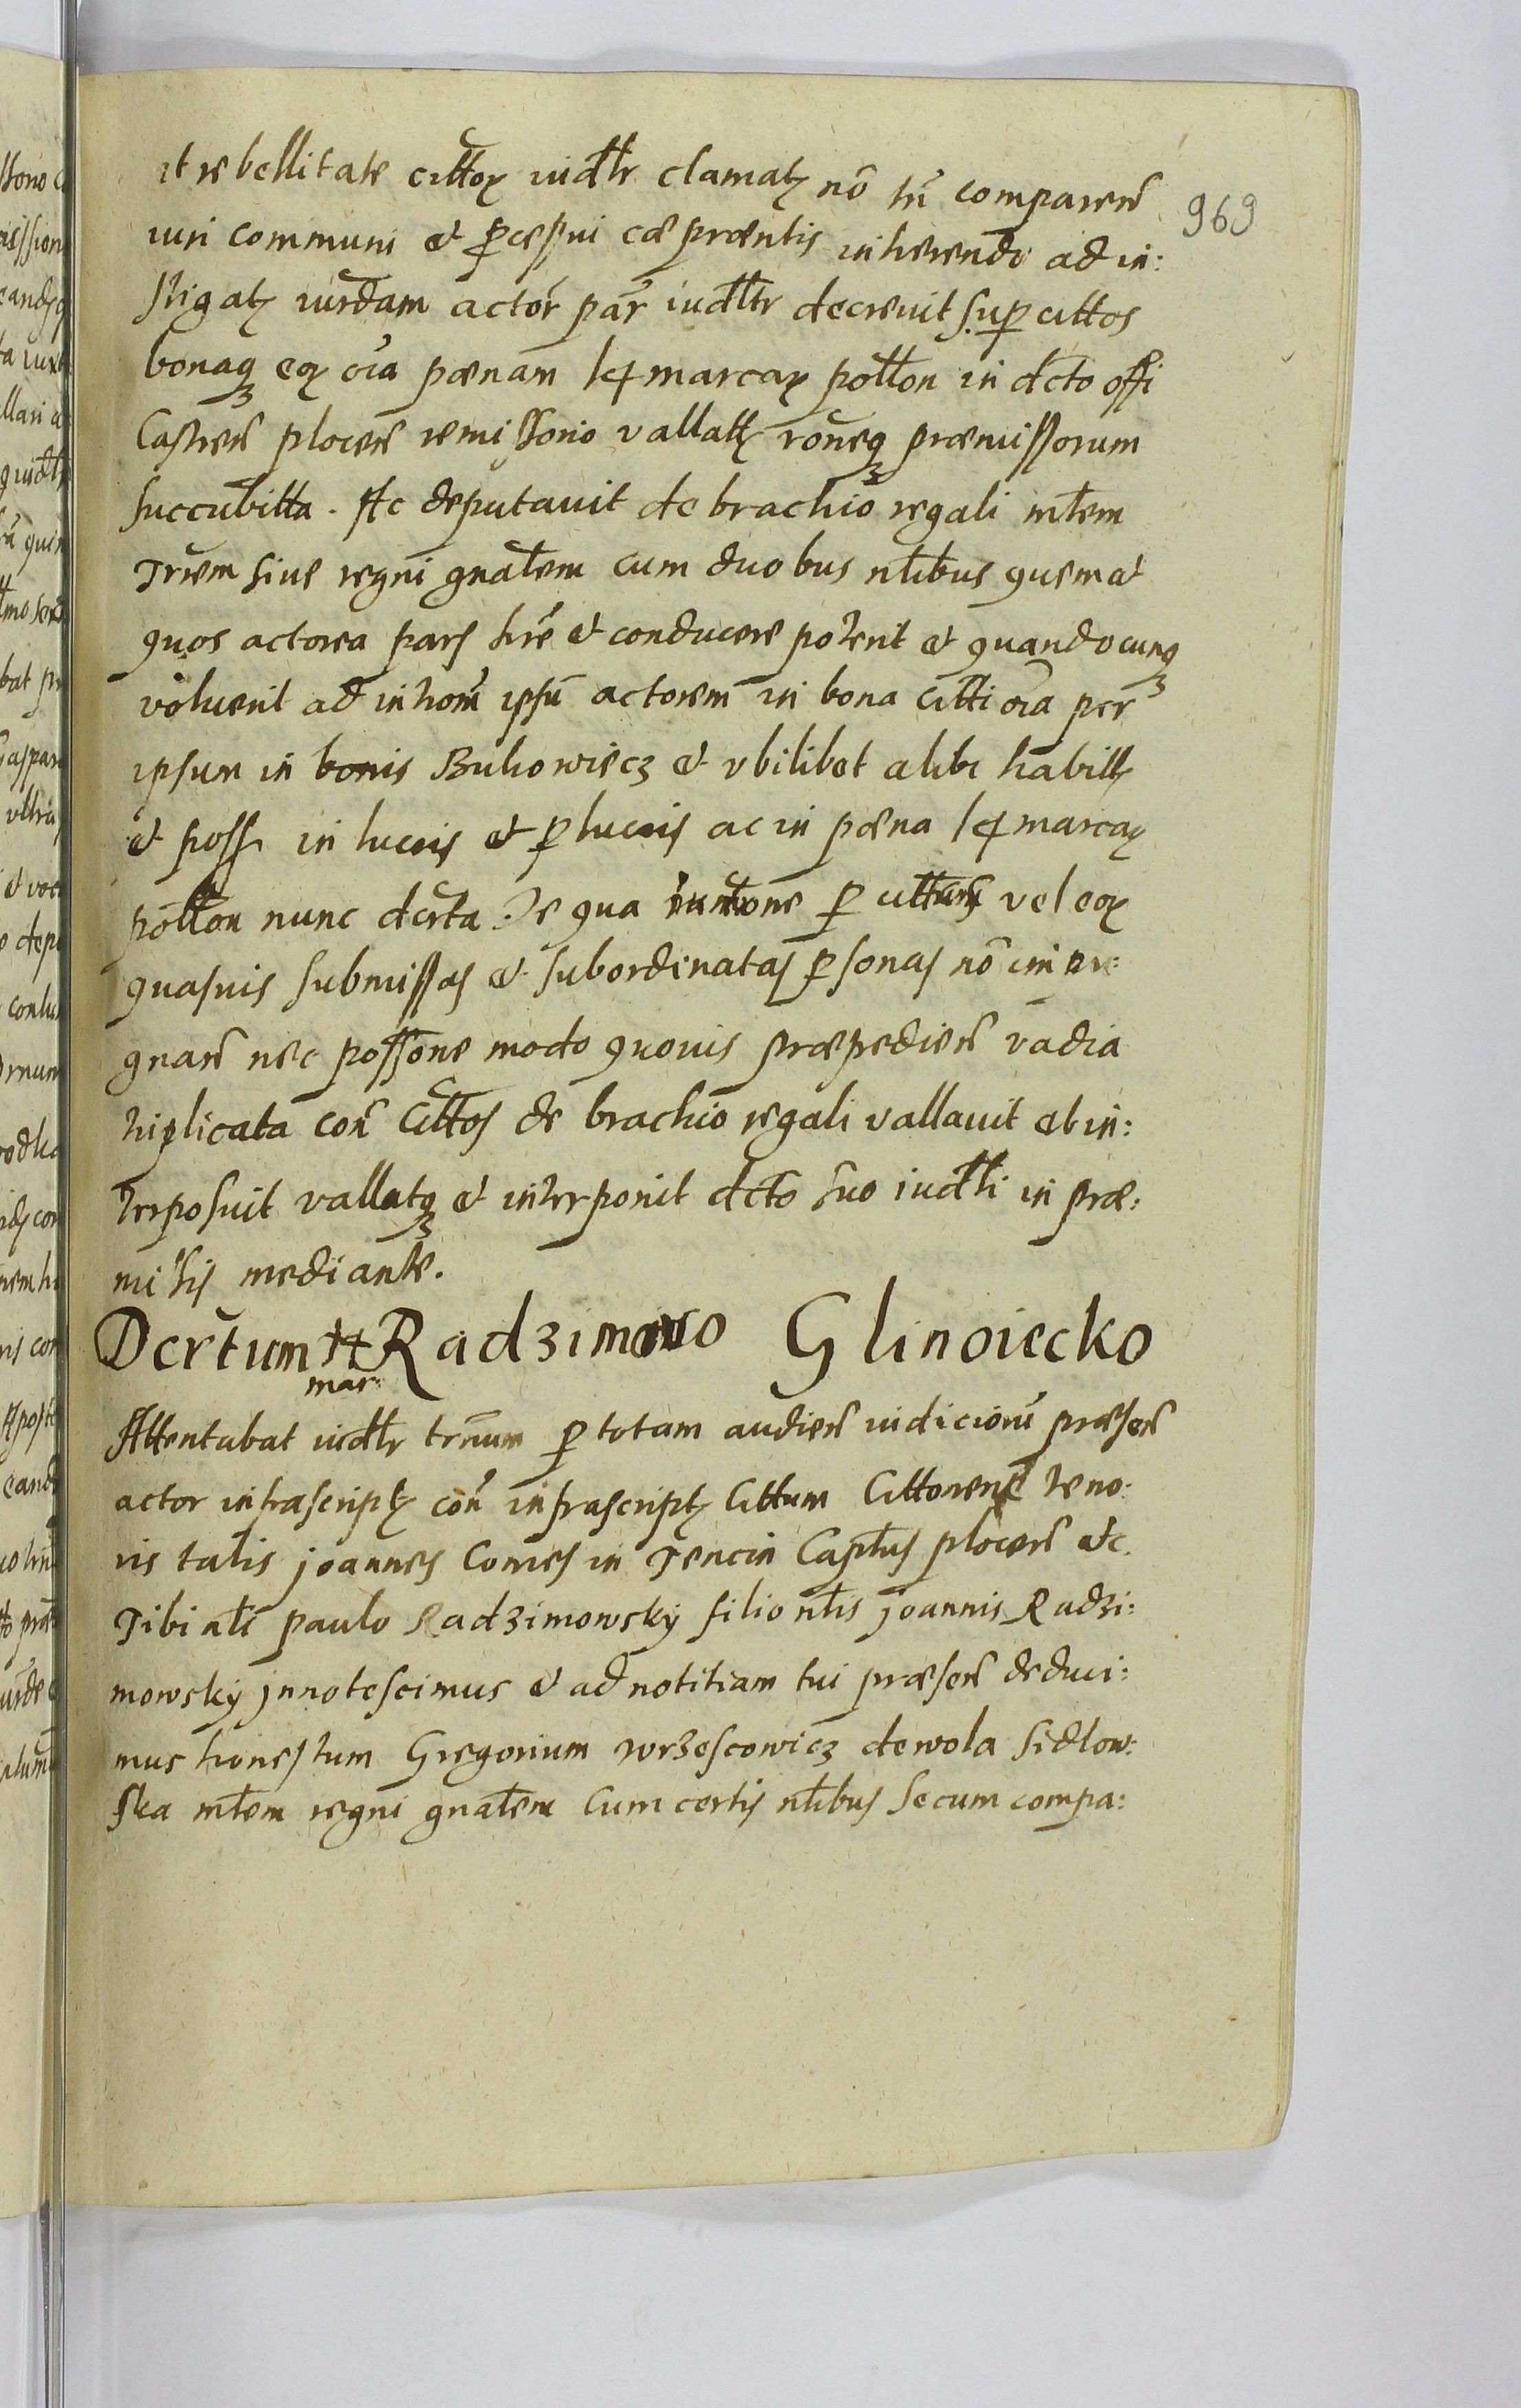 et rebellitate cittoꝝ iudłr clamatꝫ nō tn̄ comparen̄
969
iuri communi et ꝑcessui cæ præntis inherendo ad in:
stigatꝫ iurdam actor̄ par̄ iudłtr decrevit suꝑ cittos
bonaqꝫ eoꝝ oīa pænam marcaꝝ połłon in dcto offi
Castren̄ plocen̄ remissorio vallatꝫ rōneqꝫ præmissorum
succubitta. Ac deputavit de brachio regali młem
Trřem sive regni gnałem cum duobus nłibus quem et
quos actorea pars hr̄e et conducere poterit et quandocunqꝫ
voluerit ad introm̄ ipsū actorem in bona citti oīa per
ipsum in bonis Bukowiecz et ubilibet alibi habitꝫ
et poss in lucris et ꝑlucris ac in pæna marcaꝝ
połłon nunc dcrta De qua ꝑ cittum vel eoꝝ
quasvis submissas et subordinatas ꝑsonas nō impu:
gnan̄ nec possone modo quovis præpedien̄ vadia
triplicata con̄ Cittos de brachio regali vallavit et in:
terposuit vallatqꝫ et interponit dcto suo iudłi in præ:
missis mediante.
Dcrētum Radzimowo Glinoiecko
mar:
Attentabat iudłr trm̄um ꝑ totam audien̄ iudiciorū præsen̄
actor infrascriptꝫ con̄ infrascriptꝫ Cittum Cittonem teno:
ris talis joannes Comes in Tencin Captus plocen̄ etc.
Tibi nłi paulo Radzimowsky filio nłis joannis Radzi:
mowsky jnnotescimus et ad notitiam tui præsen̄ deduci:
mus honestum Gregorium wrzescowicz de wola Sidlow:
ska młem regni gnałem Cum certis nłibus secum compa: